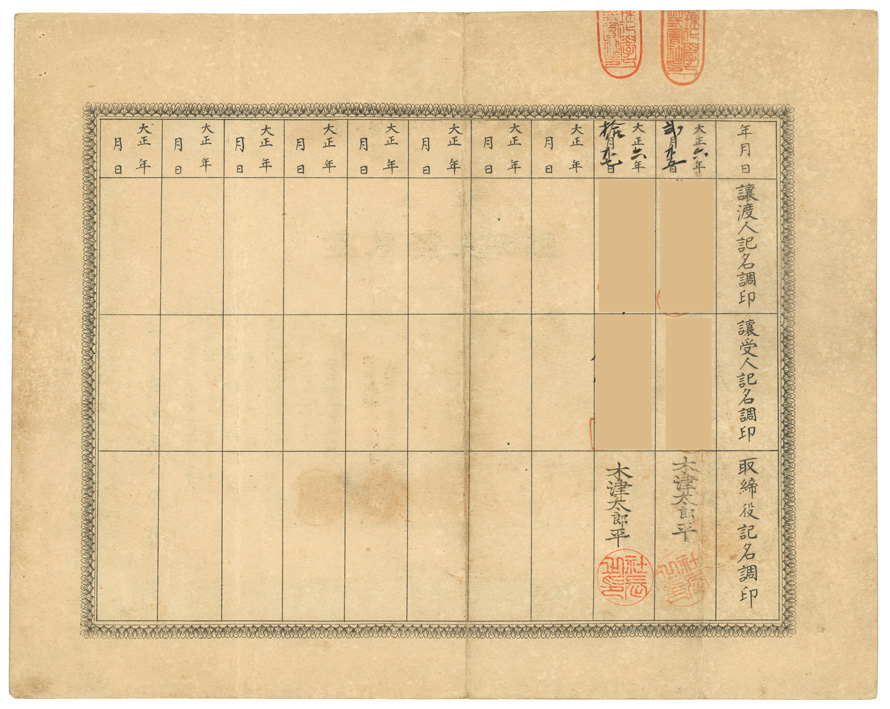 年月日
讓渡人記名調印
讓受人記名調印
取締役記名調印
大正六年
月 日
木津太郎平
社長之印
大正六年
拾月廿七日
木津太郎平
社長之印
大正 年
月 日
大正 年
月 日
大正 年
月 日
大正 年
月 日
大正 年
月 日
大正 年
月 日
大正 年
月 日
大正 年
月 日